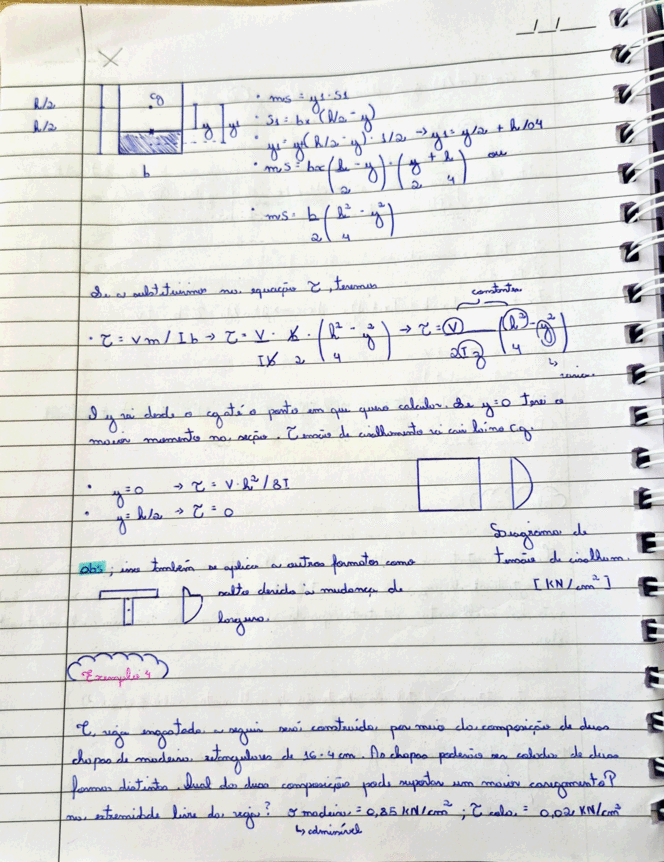 __/__/__
X
h/2
h/2
cg
y
y1
b
• ms = y1 · S1
• S1 = bx (h/2 - y)
• y1 = y + (h/2 - y) · 1/2 → y1 = y/2 + h/04
• ms = bx (h/2 - y) · (y/2 + h/4) ou
• ms = b/2 (h²/4 - y²)
Se a substituirmos na equação τ, teremos
constantes
• τ = Vm / Ib → τ = V/Ib · b/2 · (h²/4 - y²) → τ = V/2I (h²/4 - y²)
↳ varia
y vai desde o cg até o ponto em que quero calcular. Se y=0 terei o
maior momento na seção. Tensão de cisalhamento vai cair la no Cg.
• y=0 → τ = V·h²/8I
• y=h/2 → τ = 0
Diagrama de
tensão de cisalham.
[KN/cm²]
obs; isso também se aplica a outros formatos como
salto devido à mudança de
largura.
Exemplo 4
viga engastada a seguir será construída por meio da composição de duas
chapas de madeira retangulares de 16·4 cm. As chapas poderão ser coladas de duas
formas distintas. Qual das duas composição pode suportar um maior carregamento P
na extremidade livre da viga? σ madeira = 0,85 KN/cm² ; τ cola = 0,02 KN/cm²
↳ adminível